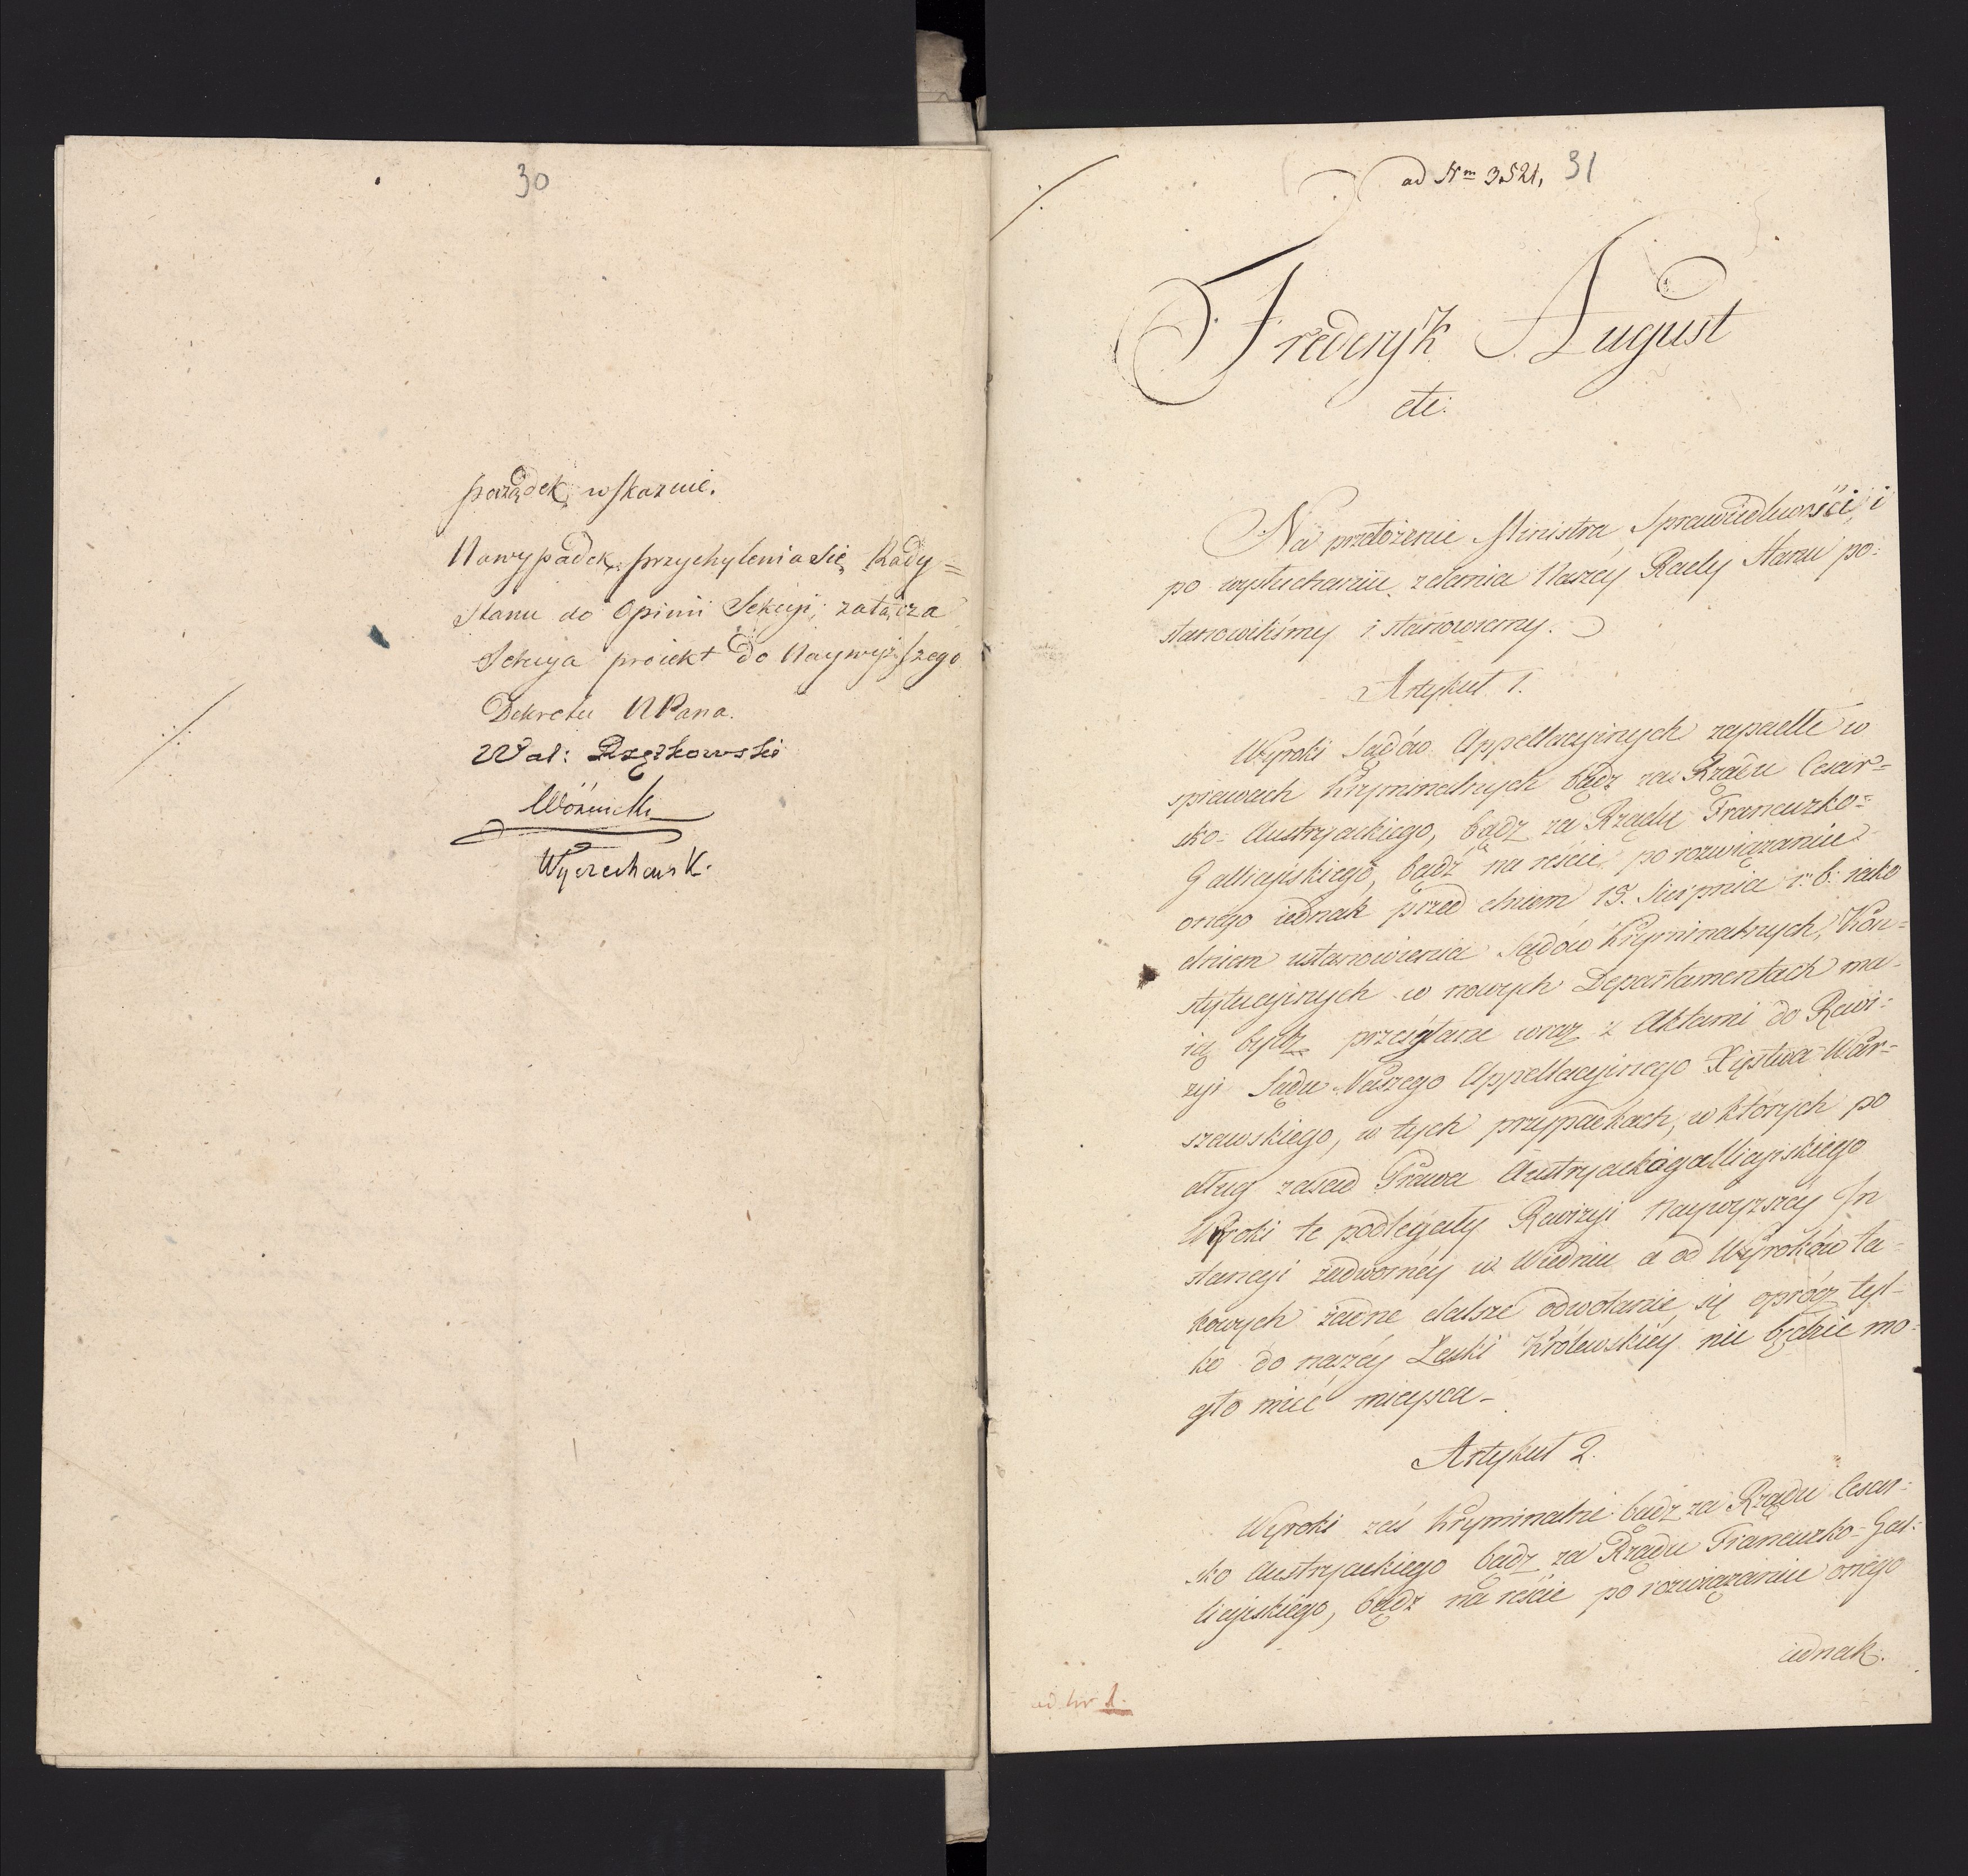 30
porządek wskazuie.
Na wypadek przychylenia się Rady=
Stanu do Opinii Sekcyi; załącza
Sekcya proiekt do Naywyższego
Dekretu NPana.
Wal: Rzętkowski
Woźnicki
Wyczechowsk.
ad Nm 3521, 31
Frederyk August
etc:
Na przełożenie Ministra Sprawiedliwości, i
po wysłuchaniu zdania Naszéy Rady Stanu po=
stanowiliśmy i stanowiemy.
Artykuł 1.
Wyroki Sądów Appellacyinych zapadłe w
sprawach Kryminalnych bądz za Rządu Cesar=
sko-Austryackiego, bądz za Rządu Francuzko=
Gallicyiskiego, bądź na reście po rozwiązaniu
onego iednak przed dniem 15. Sierpnia r: b: iako
dniem ustanowienia Sądów Kryminalnych, Kon=
stytucyinych w nowych Departamentach ma-
ią bydz przesyłane wraz z Aktami do Rewi=
zyi Sądu Naszego Appellacyinego Xięstwa War=
szawskiego, w tych przypadkach, w których po
dług zasad Prawa Austryackogallicyiskiego
Wyroki te podlegały Rewizyi Naywyzszéy In
stancyi zadwornéy w Wiedniu a od Wyroków ta=
kowych żadne dalsze odwołanie się oprócz tyl-
ko do naszéy Łaski Królewskiéy nie będzie mo=
gło mieć mieysca-
Artykuł 2.
Wyroki zaś Kryminalne bądz za Rządu Cesar=
sko Austryackiego bądz za Rządu Francuzko-Gal=
licyiskiego, bądz na reście po rozwiązaniu onego
iednak.
ad Nr 1.